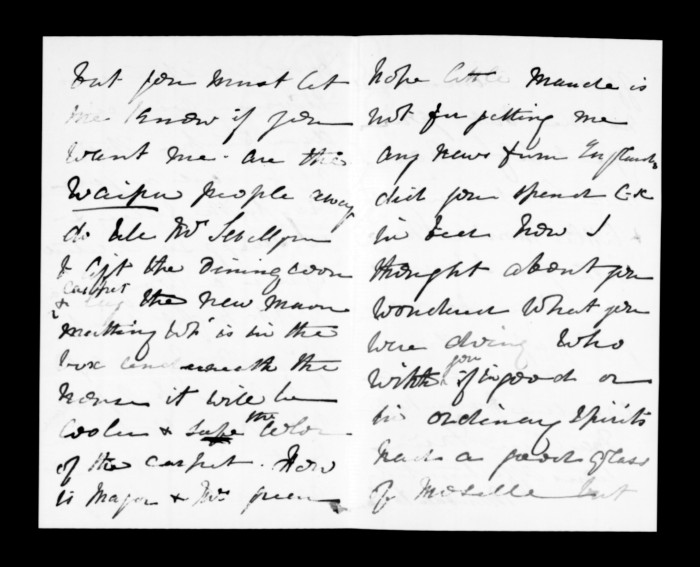 but you must let
me know if you
want me. are the
Waipu people away
do tell Mr
to lift the Dining room
carpet
& lay the new
matting wh is in the
box underneath the
house it will be
cooler & safe the color
of the carpet. How
is Major & Mrs Green
hope little Maude is
not forgetting me
any news from England
did you spend
in how I
thought about you
wondered what you
were doing who
with & if you in good or
in ordinary spirits
had a good glass
of Moselle but